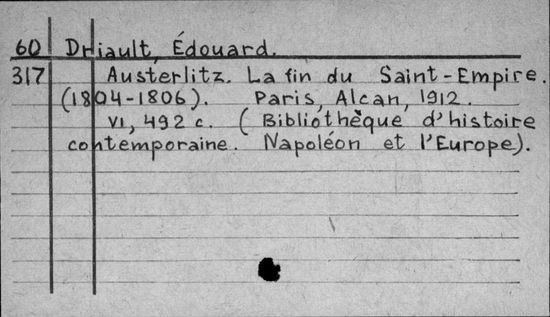 60 Driault, Édouard.
317 Austerlitz. La fin du Saint-Empire.
(1804-1806). Paris, Alcan, 1912.
VI, 492 c. (Bibliothèque d'histoire
contemporaine. Napoléon et l'Europe).